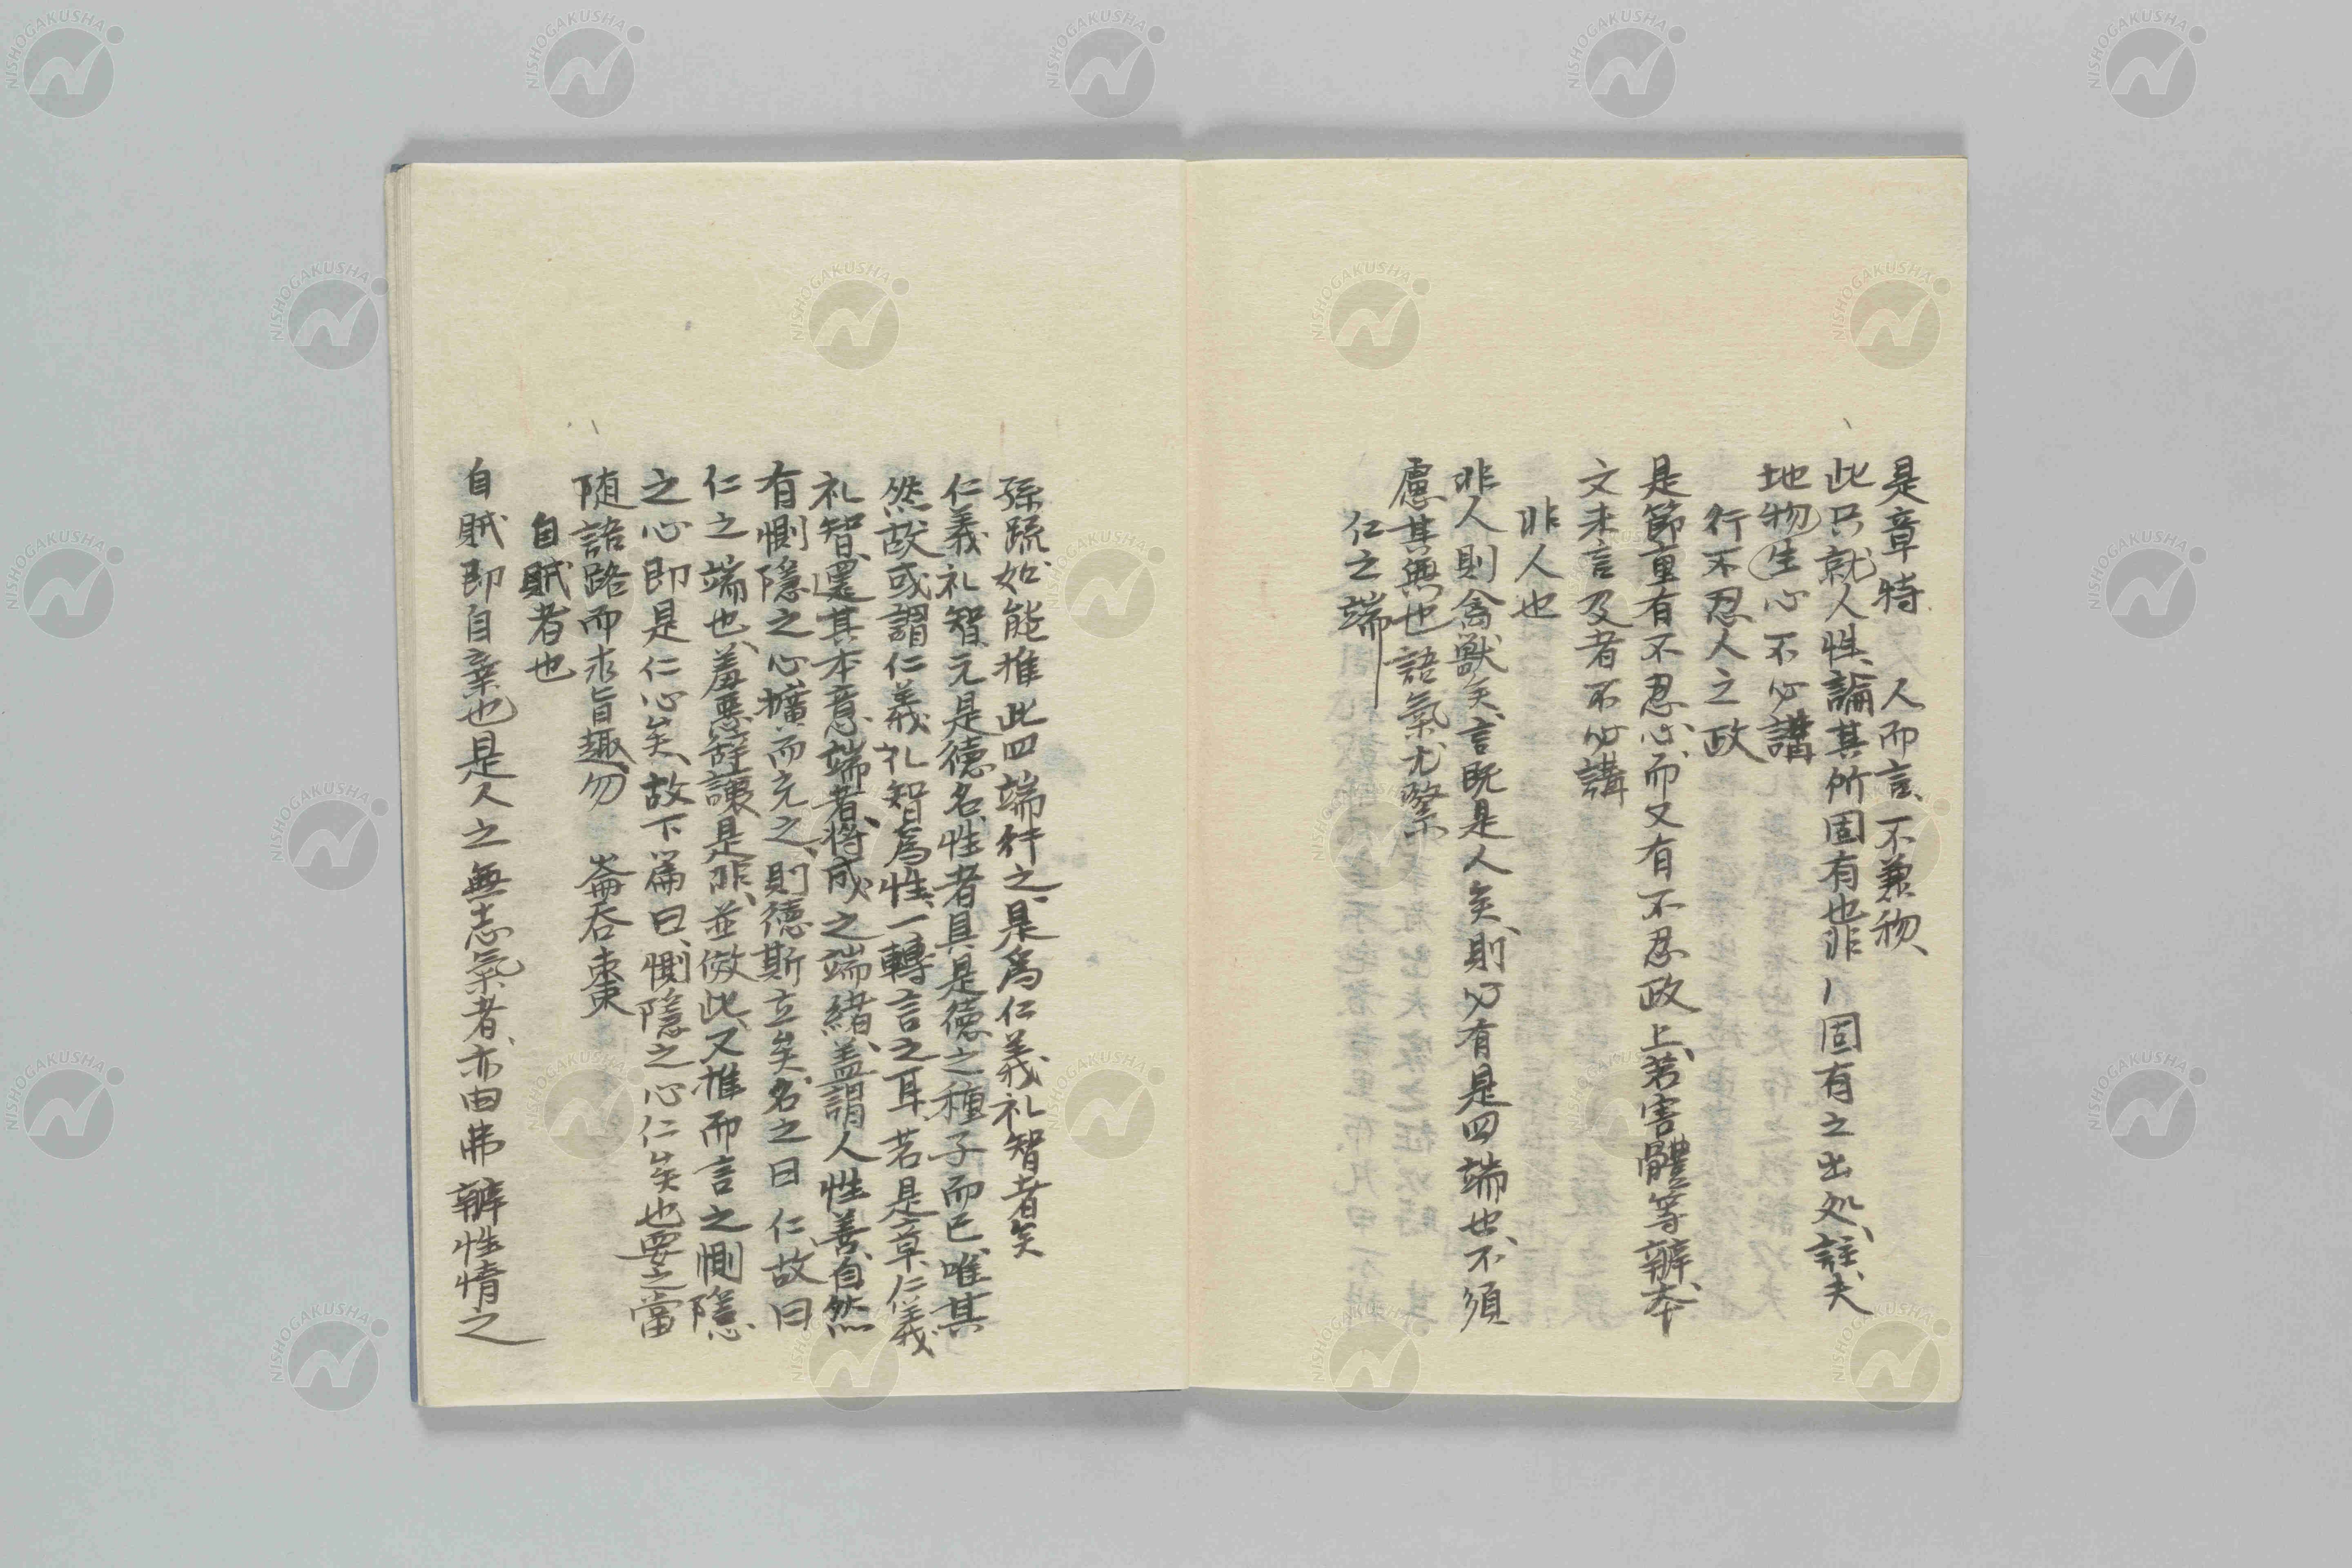 是章特 人而言、不兼物、
此只就人性、論其所固有也、非丨固有之出処、註夫
地物生心不必講
行不忍人之政
是節重有不忍心、而又有不忍政上、若害體等辨、本
文未言及者不必講
非人也
非人則禽獸矣、言既是人矣、則必有是四端也、不須
慮其無也語氣尤緊
仁之端
孫疏、如能推此四端行之、是為仁義礼智者矣
仁義礼智、元是德名、性者具是德之種子而已、唯其
然、故或謂仁義礼智為性、一轉言之耳、若是章、仁義
礼智、還其本意、端者、將成之端緒、蓋謂人性善、自然
有惻隱之心、擴而充之、則德斯立矣、名之曰仁、故曰
仁之端也、羞惡辭讓是非、並倣此、又推而言之、惻隱
之心即是仁心矣、故下篇曰、惻隱之心仁矣也、要之當
随語路而求旨趣、勿 崙吞棗
自賊者也
自賊即自棄也、是人之無志氣者、亦由弗辨性情之
NISHOGAKUSHA